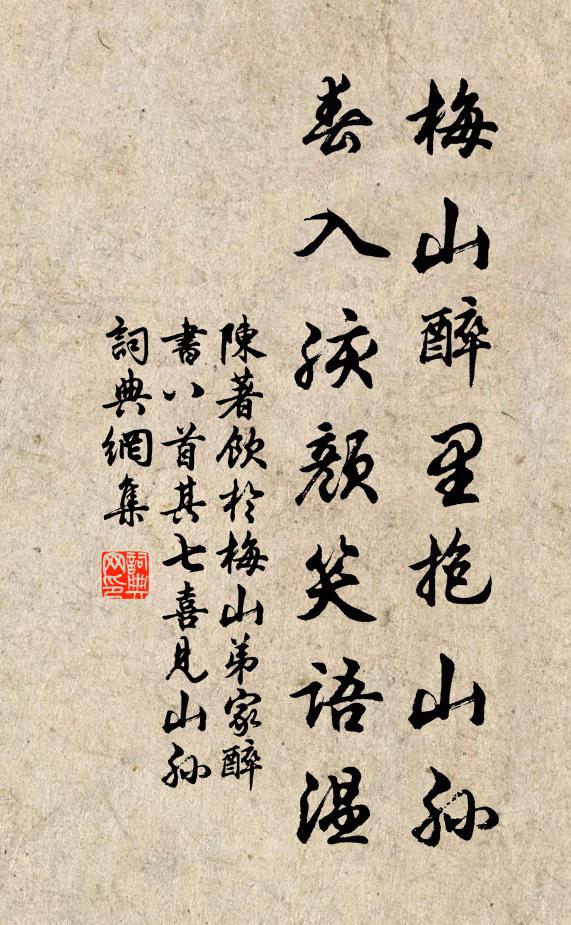 梅山醉里抱山孙
春入孩顏笑語温
陳著飲於梅山弟家醉
書八首其七喜見山孙
詞典網集
詞典网印